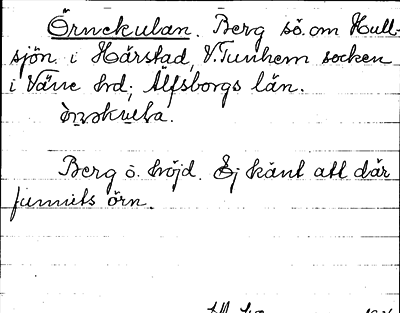 Örnekulan. Berg sö. om Hull-
sjön i Härstad, V. Tunhem socken
i Väne hd; Älfsborgs län.
Berg o. höjd. Ej känt att där
funnits örn.